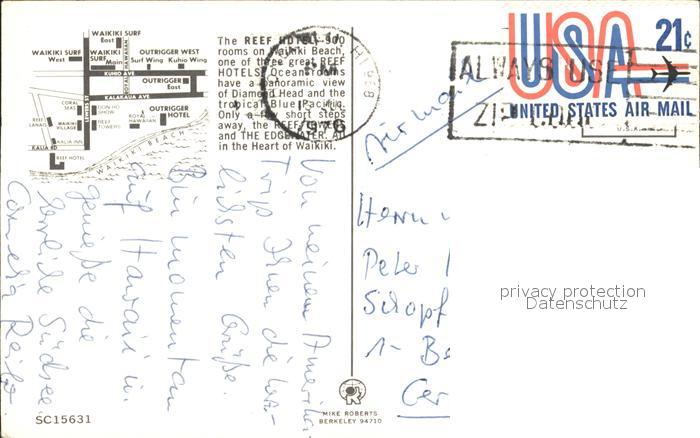 WAIKIKI SURF
East
WAIKIKI SURF
West
WAIKIKI
SURF
Main
OUTRIGGER WEST
Surf Wing Kuhio Wing
KUHIO AVE
OUTRIGGER
East
KALAKAUA AVE
LEWERS ST
CORAL
SEAS
DON HO
SHOW
REEF
LANAIS
WAIKIKI
VILLAGE
REEF
TOWERS
ROYAL
HAWAIIAN
OUTRIGGER
HOTEL
KALIA RD
KALIA INN
REEF HOTEL
WAIKIKI BEACH
The REEF HOTEL, 900
rooms on Waikiki Beach,
one of three great REEF
HOTELS. Ocean rooms
have a panoramic view
of Diamond Head and the
tropical Blue Pacific.
Only a few short steps
away, the REEF TOWERS
and THE EDGEWATER. All
in the Heart of Waikiki.
USA 21c
UNITED STATES AIR MAIL
ALWAYS USE
ZIP CODE
Air mail
Von meinem Amerika-
Trip Ihnen die herz-
lichsten Grüße.
Bin momentan
auf Hawaii u.
genieße die
herrliche Südsee
Cornelia
Herrn
Peter
Schopf
1- Be
Ger
privacy protection
Datenschutz
MIKE ROBERTS
BERKELEY 94710
SC15631